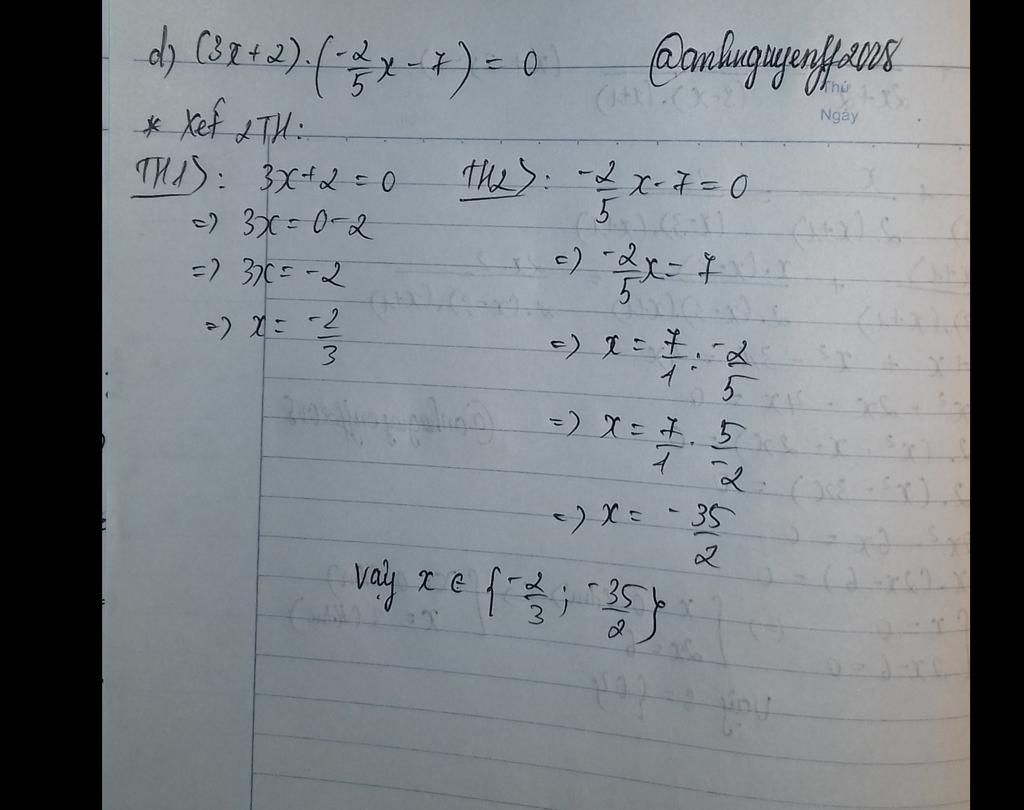 d) (3x+2).(-2/5 x - 7) = 0 @anhnguyenff2008
Thứ
Ngày
* Xét 2TH:
TH1): 3x+2=0 TH2): -2/5 x - 7 = 0
=> 3x = 0-2
=> -2/5 x = 7
=> 3x = -2
=> x = -2/3
=> x = 7/1 : -2/5
=> x = 7/1 . 5/-2
=> x = -35/2
Vậy x ∈ {-2/3; -35/2}